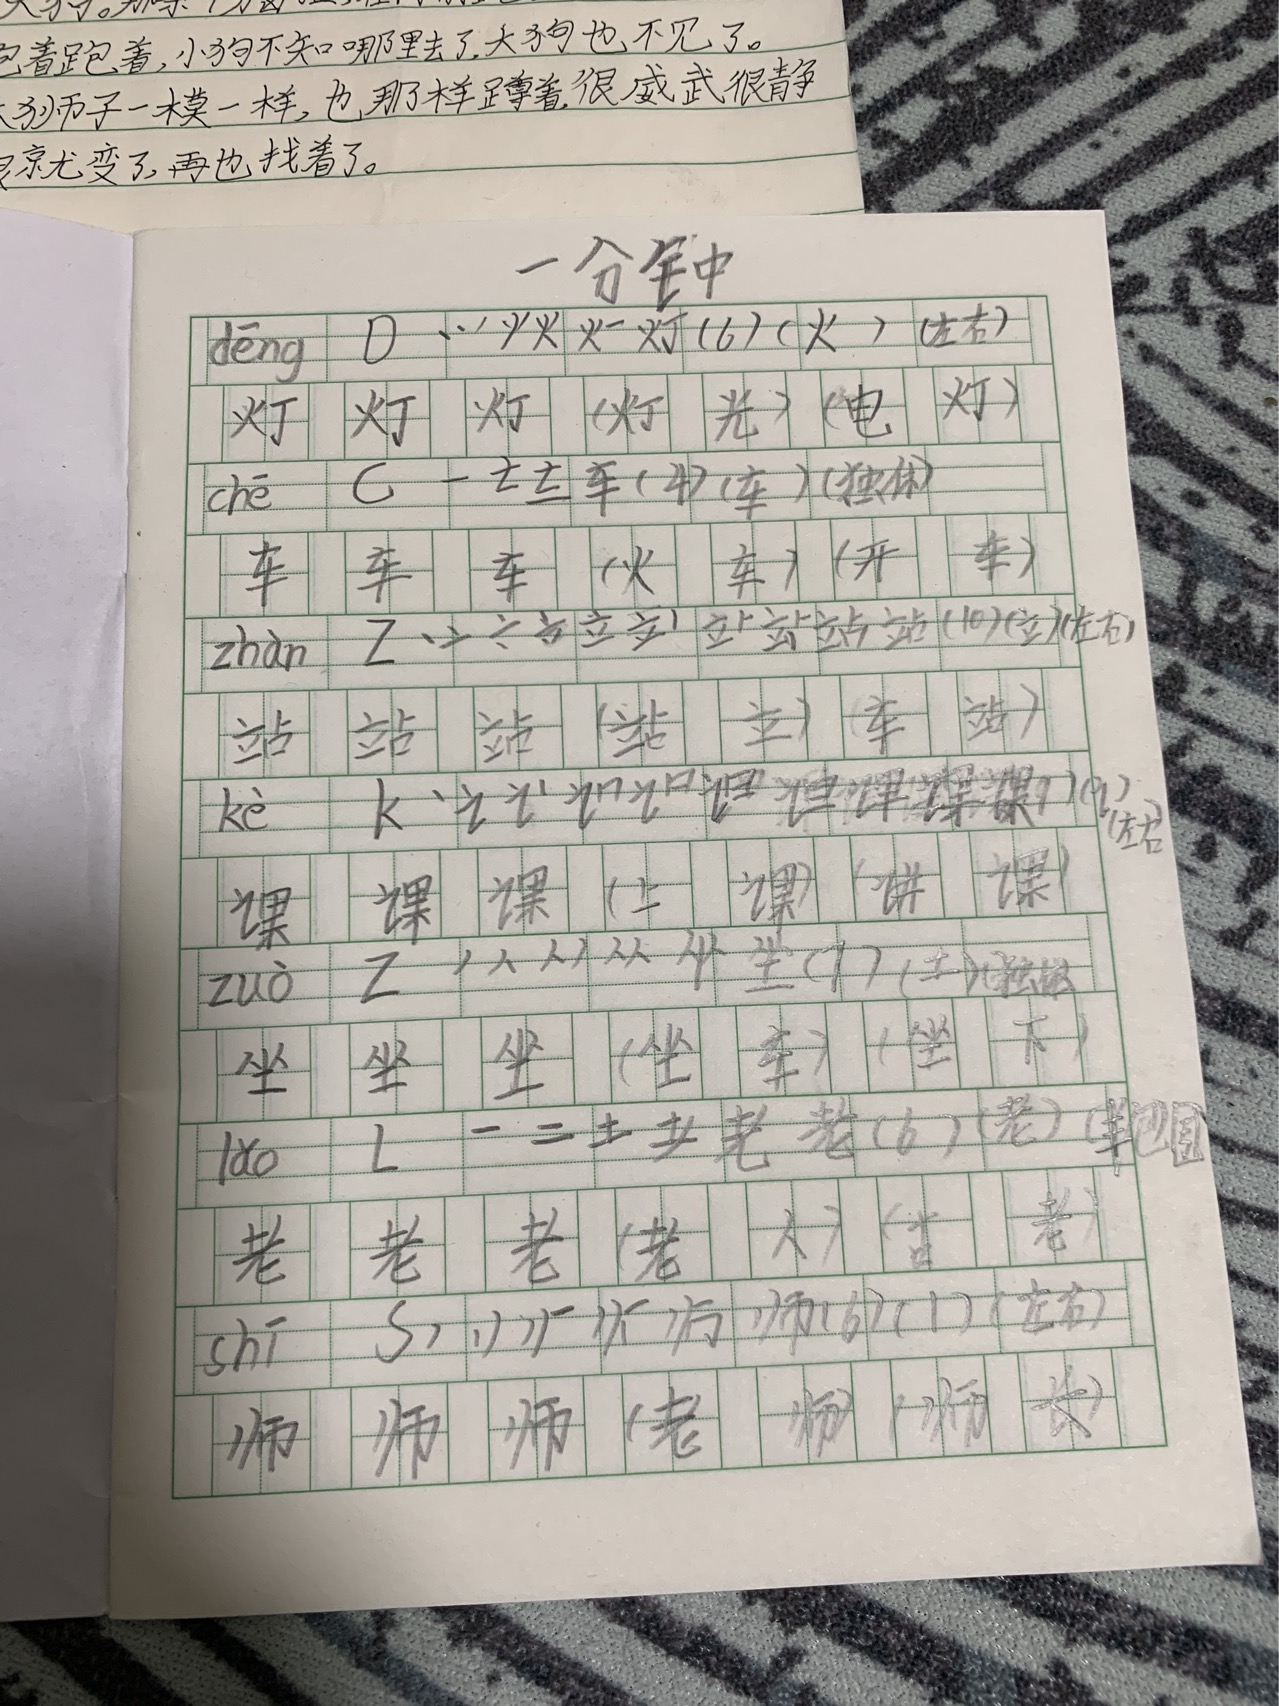 跑着跑着,小狗不知哪里去了,大狗也不见了。
大狮子一模一样,也那样蹲着,很威武很静
就变了,再也找着了。
一分钟
dēng D 灯 (6) (火) (左右)
灯 灯 灯 (灯光) (电灯)
chē C 一 车 (4) (车) (独体)
车 车 车 (火车) (开车)
zhàn Z 丶 亠 立 站 站 (10) (立) (左右)
站 站 站 (站立) (车站)
kè K 丶 讠 课 课 (讠)
(左右)
课 课 课 (上课) (讲课)
zuò Z 丿 人 从 坐 (7) (土) (独体)
坐 坐 坐 (坐车) (坐下)
lǎo L 一 二 土 耂 老 老 (6) (老) (半包围)
老 老 老 (老人) (古老)
shī S 师 (6) (丨) (左右)
师 师 师 (老师) (师长)